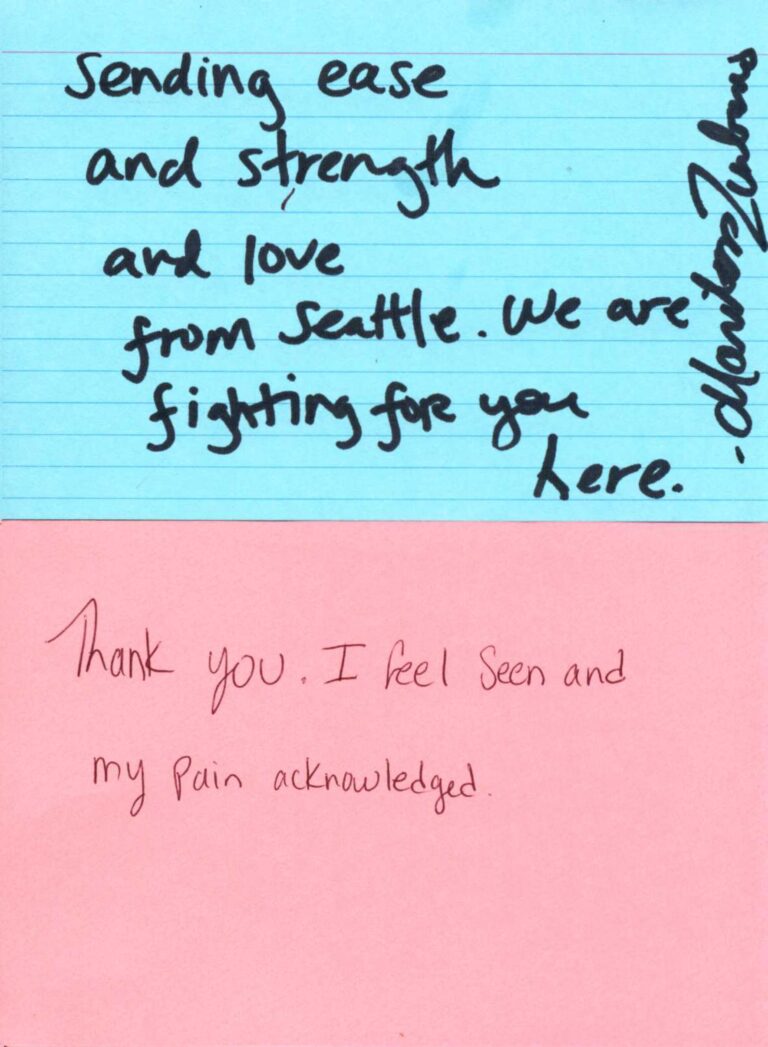 Sending ease
and strength
and love
from Seattle. We are
fighting for you
here.
Thank you. I feel Seen and
my pain acknowledged.